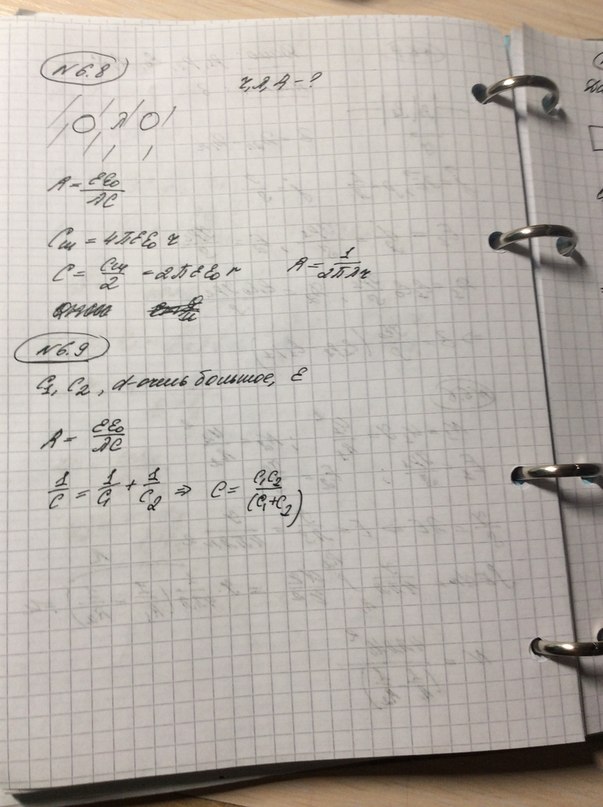 №6.8
r, λ, R - ?
λ
R = εε₀/λC
Cш = 4πεε₀ r
C = Cш/2 = 2πεε₀ r R = 1/2πλr
№6.9
C₁, C₂, d-очень большое, ε
R = εε₀/λC
1/C = 1/C₁ + 1/C₂ ⇒ C = C₁C₂/(C₁+C₂)